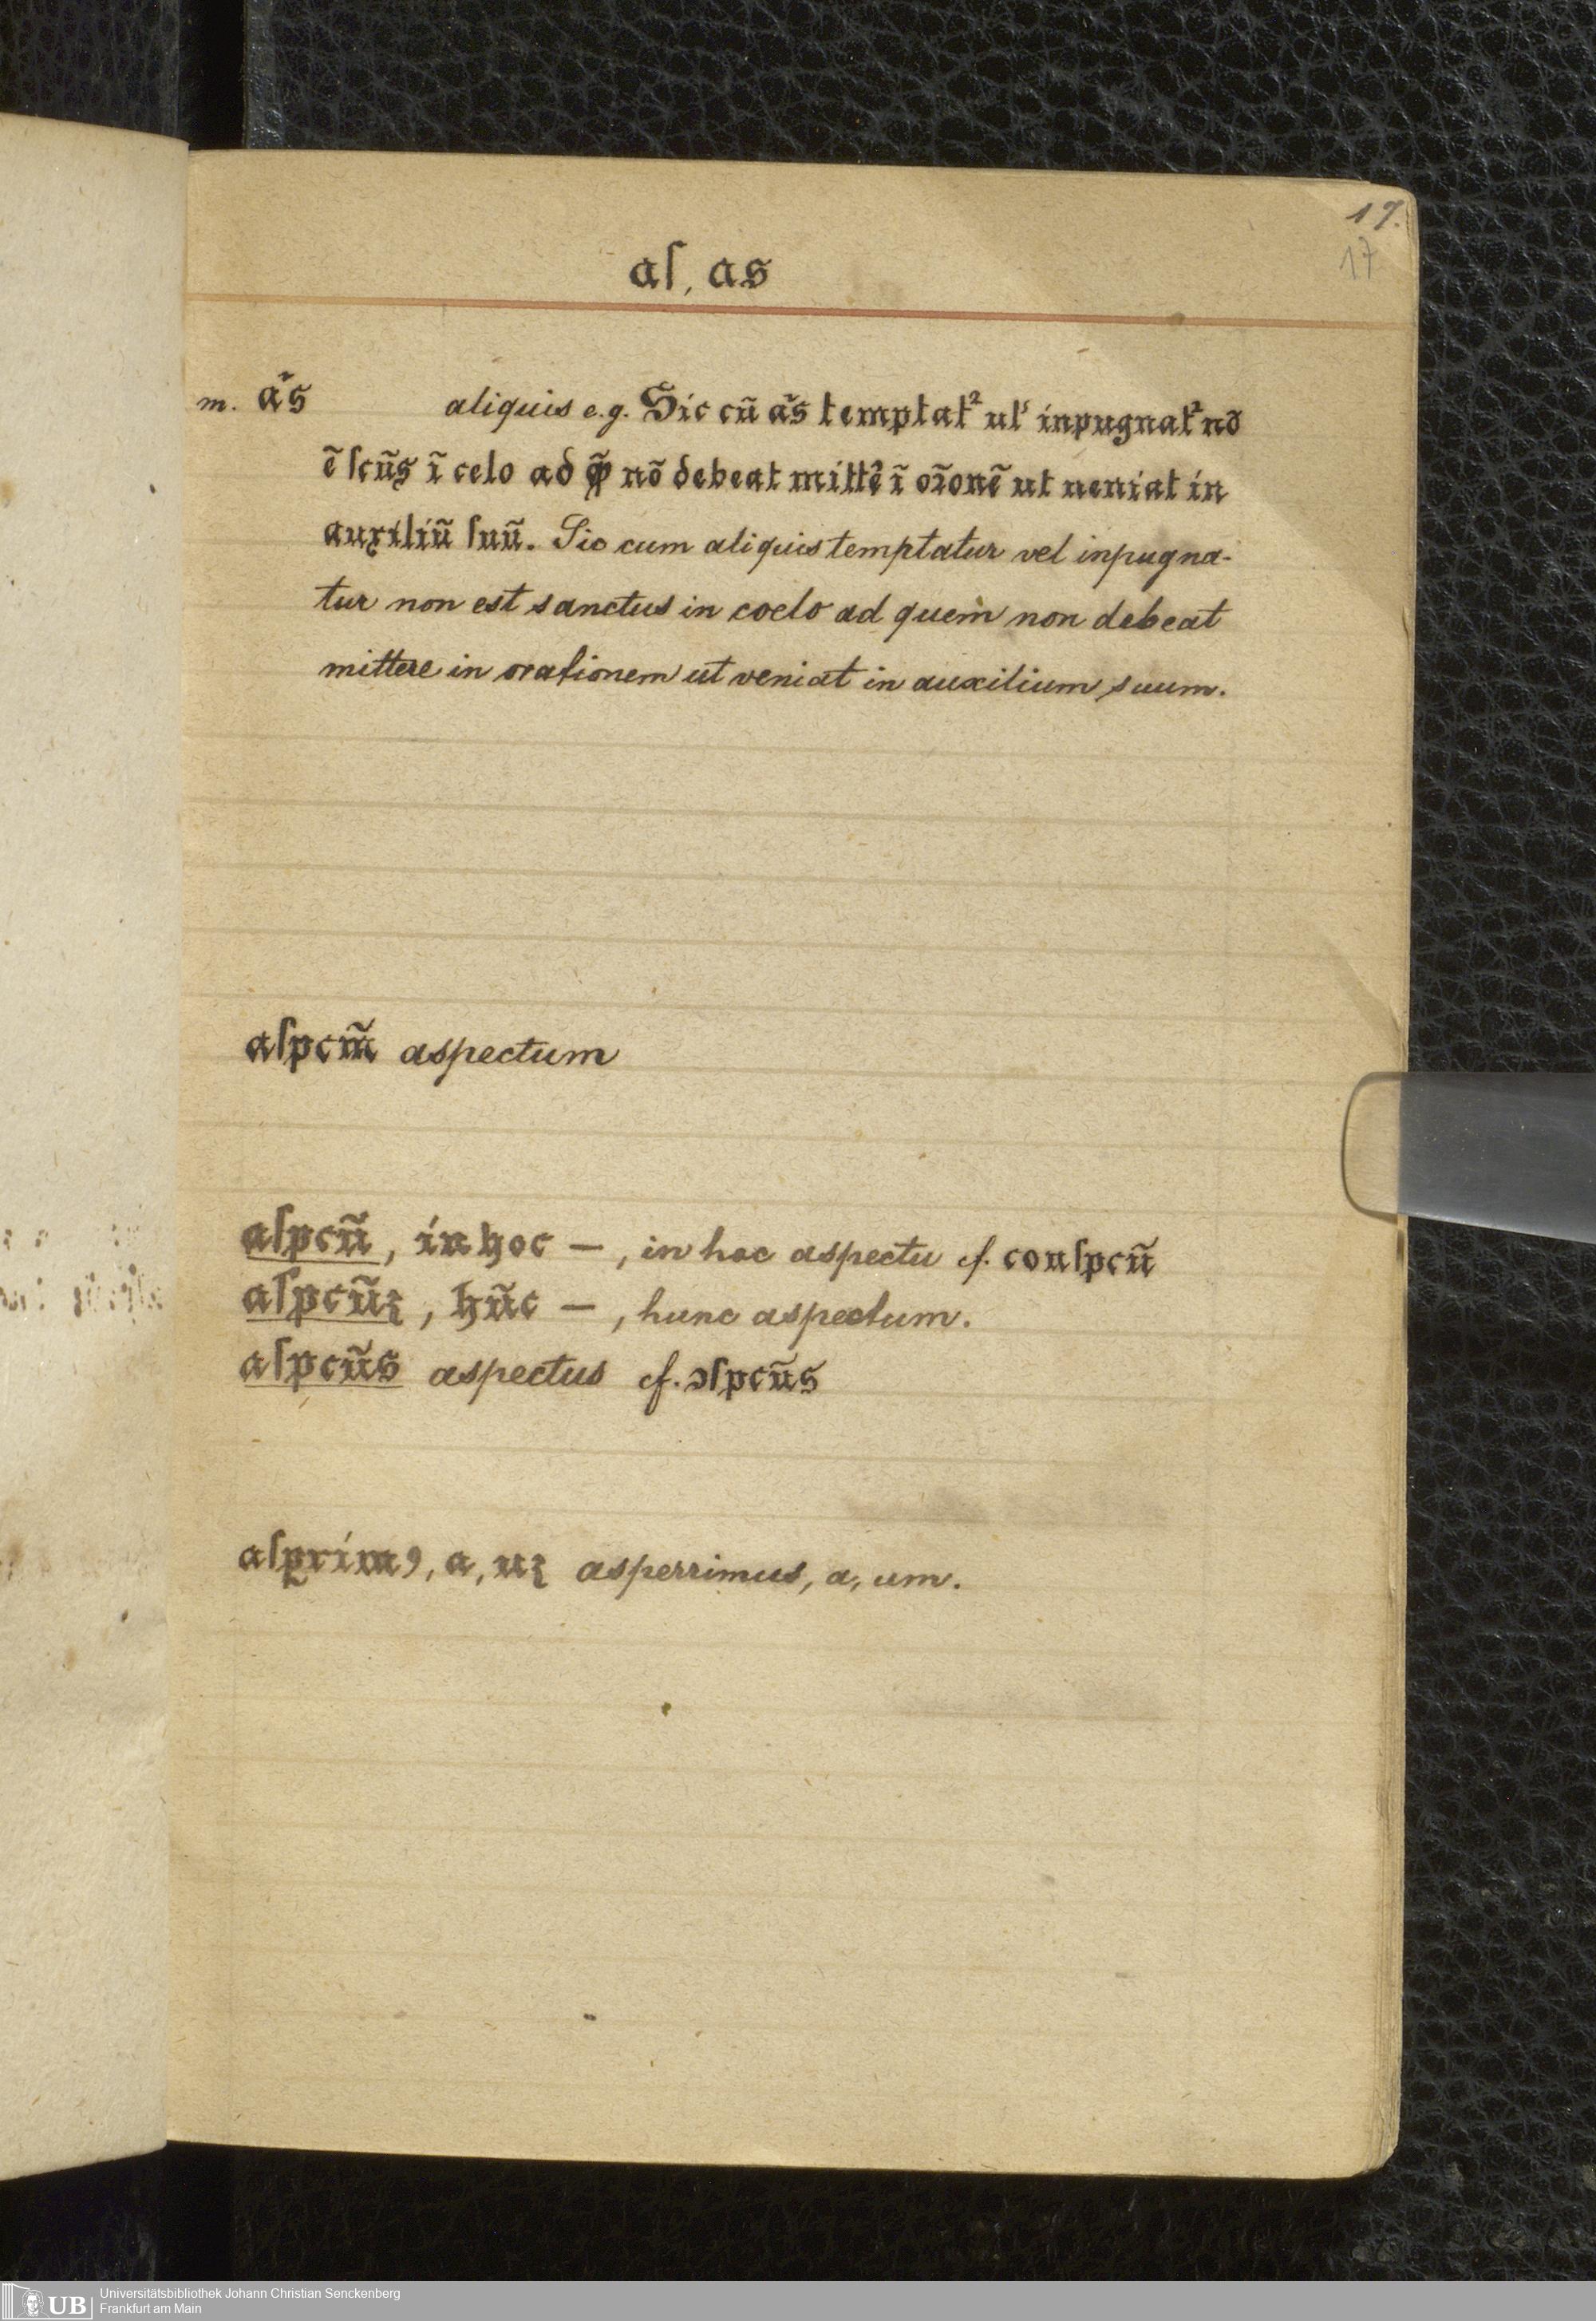 17.
17
aſ, as
m. a᷉s aliquis e.g. Sic cũ a᷉s temptat² ul' inpugnat² nõ
ẽ ſcũs ĩ celo ad q̃ nõ debeat mittẽ ĩ oĩonẽ ut ueniat in
auxiliũ ſuũ. Sic cum aliquis temptatur vel inpugna-
tur non est sanctus in coelo ad quem non debeat
mittere in orationem ut veniat in auxilium suum.
aſpcm̃ aspectum
aſpcũ, in hoc —, in hoc aspectu cf. conſpcũ
aſpcũꝫ, hũc —, hunc aspectum.
aſpcũs aspectus cf. ɔſpcũs
aſꝑrimꝰ, a, uꝫ asperrimus, a, um.
UB
Universitätsbibliothek Johann Christian Senckenberg
Frankfurt am Main